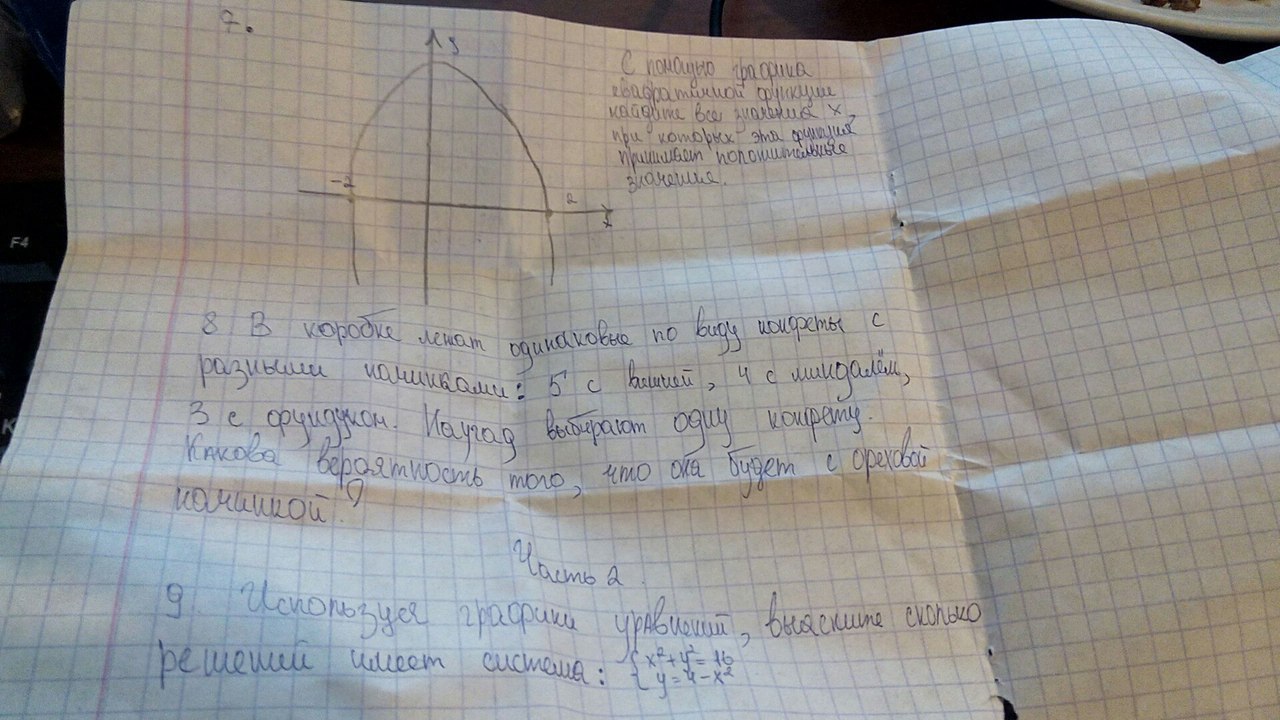 7.
y
С помощью графика
квадратичной функции
найдите все значения x,
при которых эта функция
принимает положительные
значения.
-2
2
x
8 В коробке лежат одинаковые по виду конфеты с
разными начинками: 5 с вишней, 4 с миндалём,
3 с фундуком. Наугад выбирают одну конфету.
Какова вероятность того, что она будет с ореховой
начинкой?
Часть 2.
9. Используя графики уравнений, выясните сколько
решений имеет система: { x²+y²=16
y=4-x²
F4
K